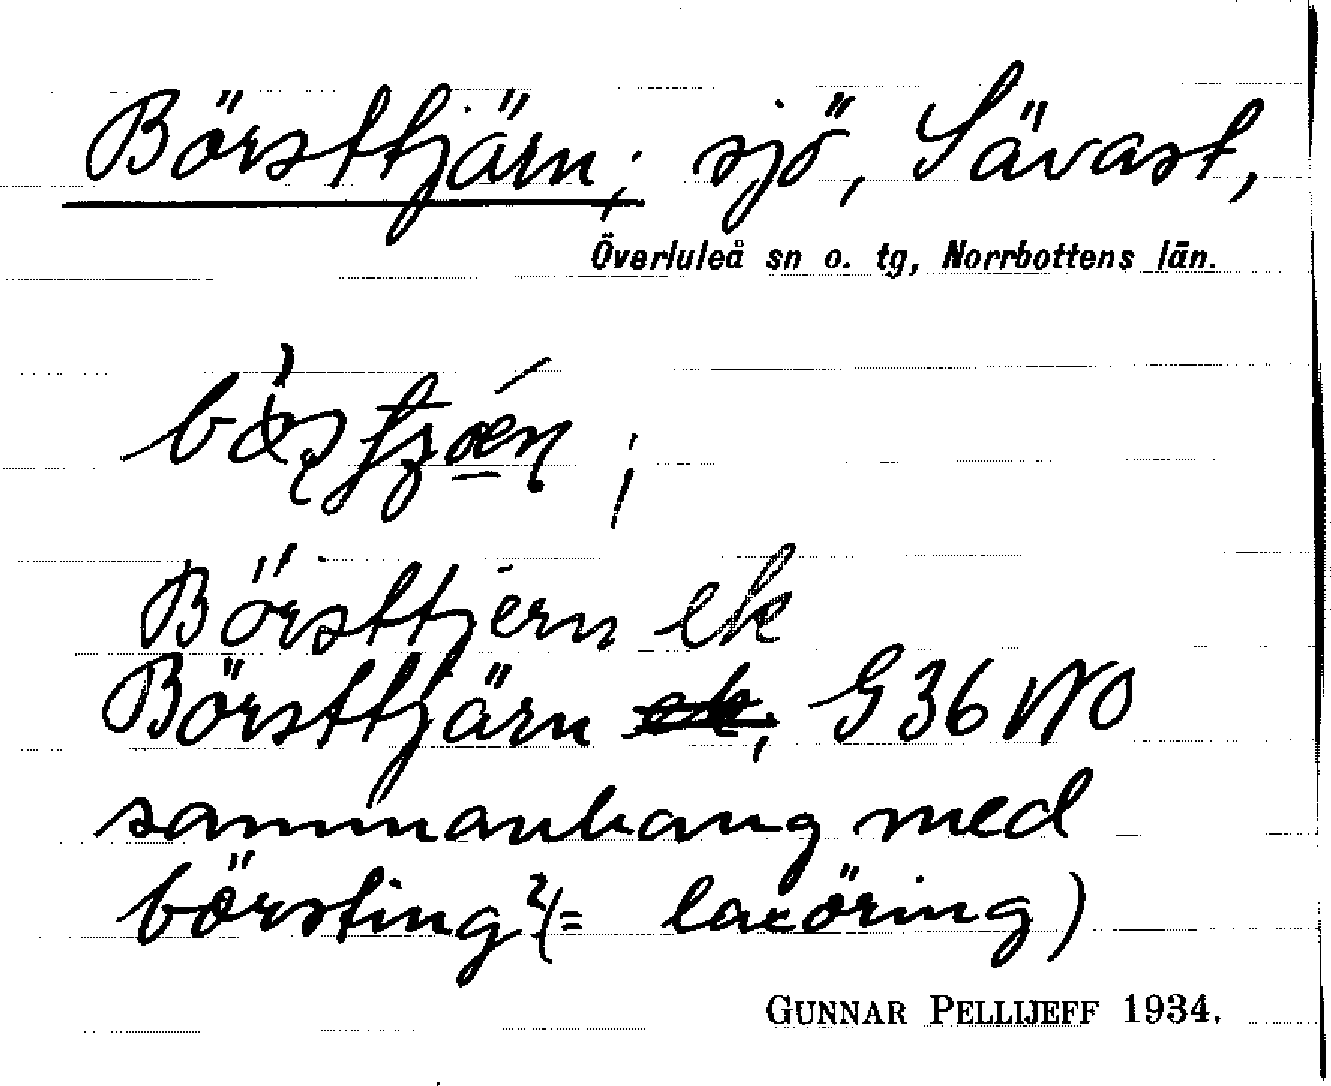 Börsttjärn; sjö, Sävast,
Överluleå sn o. tg, Norrbottens län.
Börsttjern ek
Börsttjärn ek, G36 NO
sammanhang med
börsting? (= laxöring)
GUNNAR PELLIJEFF 1934.